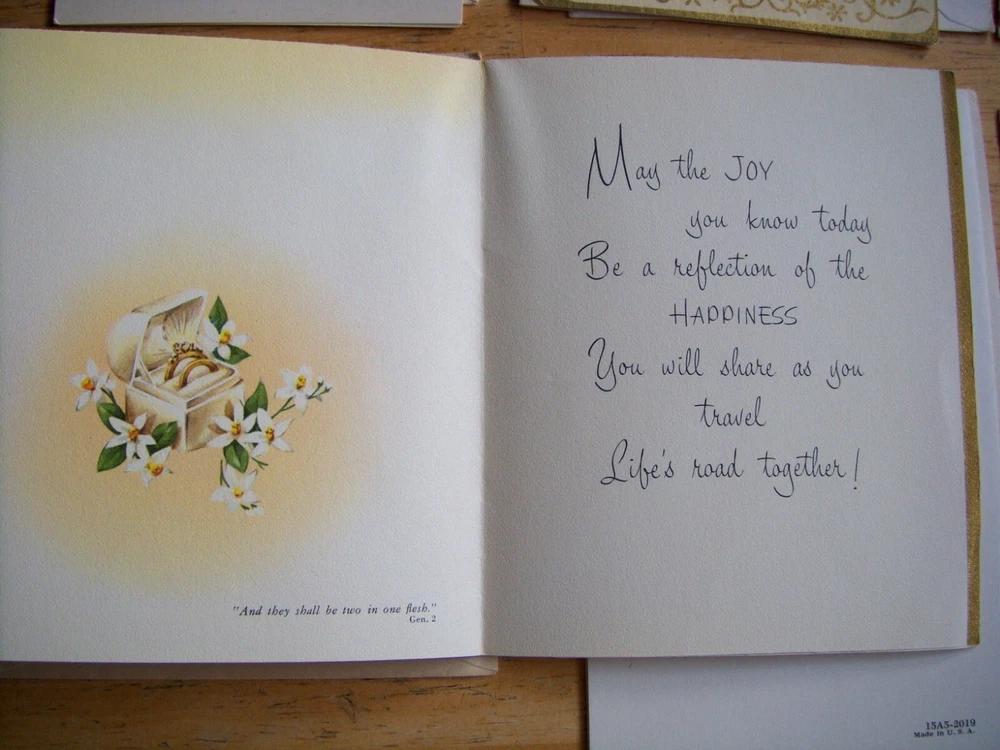 "And they shall be two in one flesh."
Gen. 2
May the JOY
you know today
Be a reflection of the
HAPPINESS
You will share as you
travel
Life's road together!
15A5-2019
Made in U. S. A.